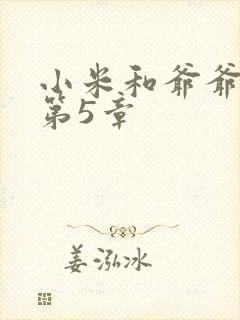 小米和爷爷
第5章
姜泓冰